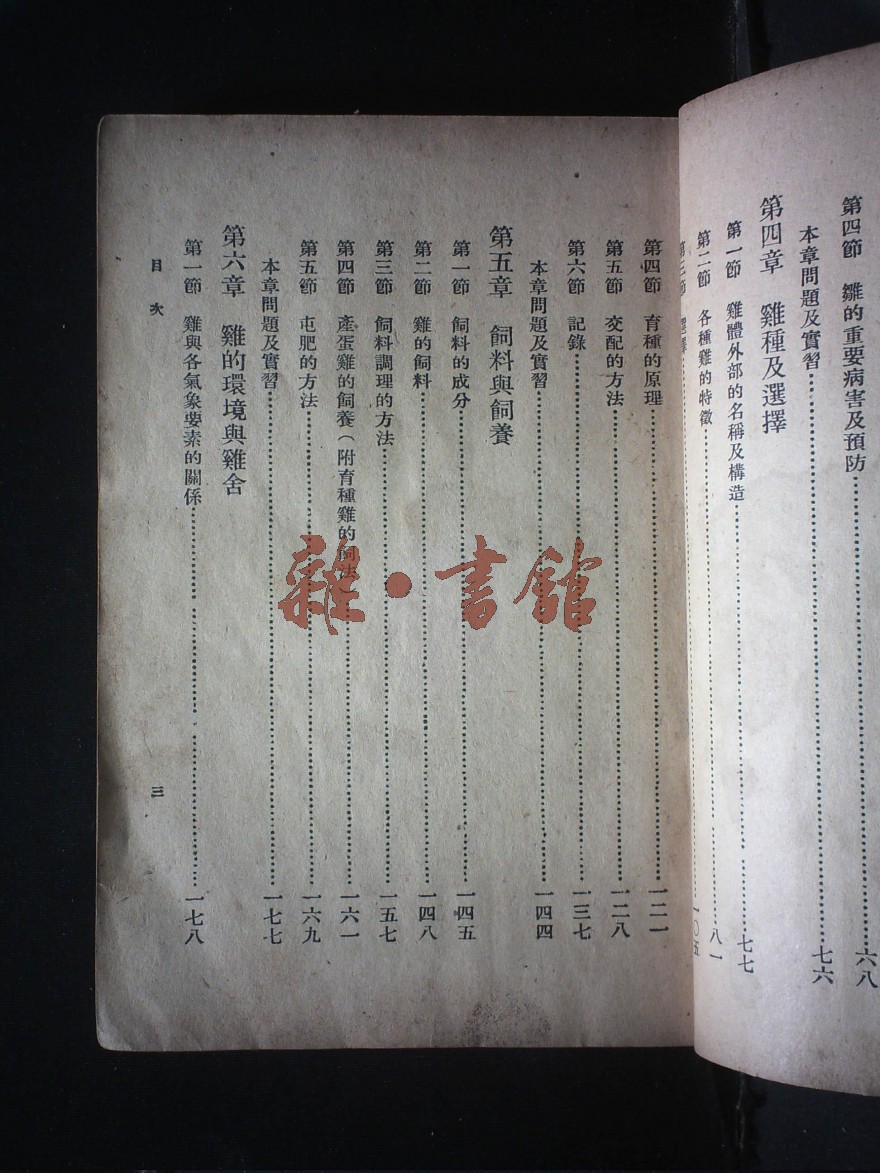 第四節 雛的重要病害及預防……六八
本章問題及實習……七六
第四章 雞種及選擇
第一節 雞體外部的名稱及構造……七七
第二節 各種雞的特徵……八一
第三節 選擇……一〇五
第四節 育種的原理……一二一
第五節 交配的方法……一二八
第六節 記錄……一三七
本章問題及實習……一四四
第五章 飼料與飼養
第一節 飼料的成分……一四五
第二節 雞的飼料……一四八
第三節 飼料調理的方法……一五七
第四節 產蛋雞的飼養(附育種雞的飼法)……一六一
第五節 屯肥的方法……一六九
本章問題及實習……一七七
第六章 雞的環境與雞舍
第一節 雞與各氣象要素的關係……一七八
目次
三
雜·書館